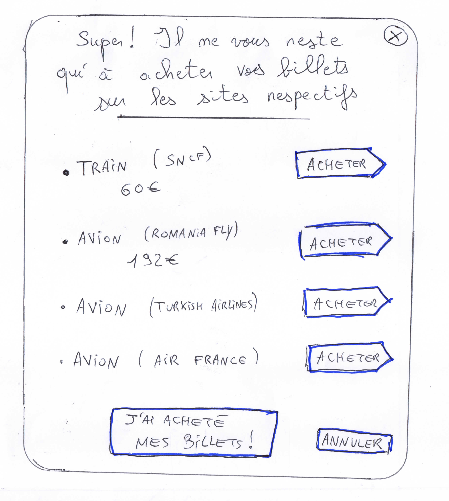 Super! Il me vous reste
qu'à acheter vos billets
sur les sites respectifs
• TRAIN (SNCF) ACHETER
60€
• AVION (ROMANIA FLY) ACHETER
192€
• AVION (TURKISH AIRLINES) ACHETER
• AVION (AIR FRANCE) ACHETER
J'AI ACHETÉ
MES BILLETS!
ANNULER